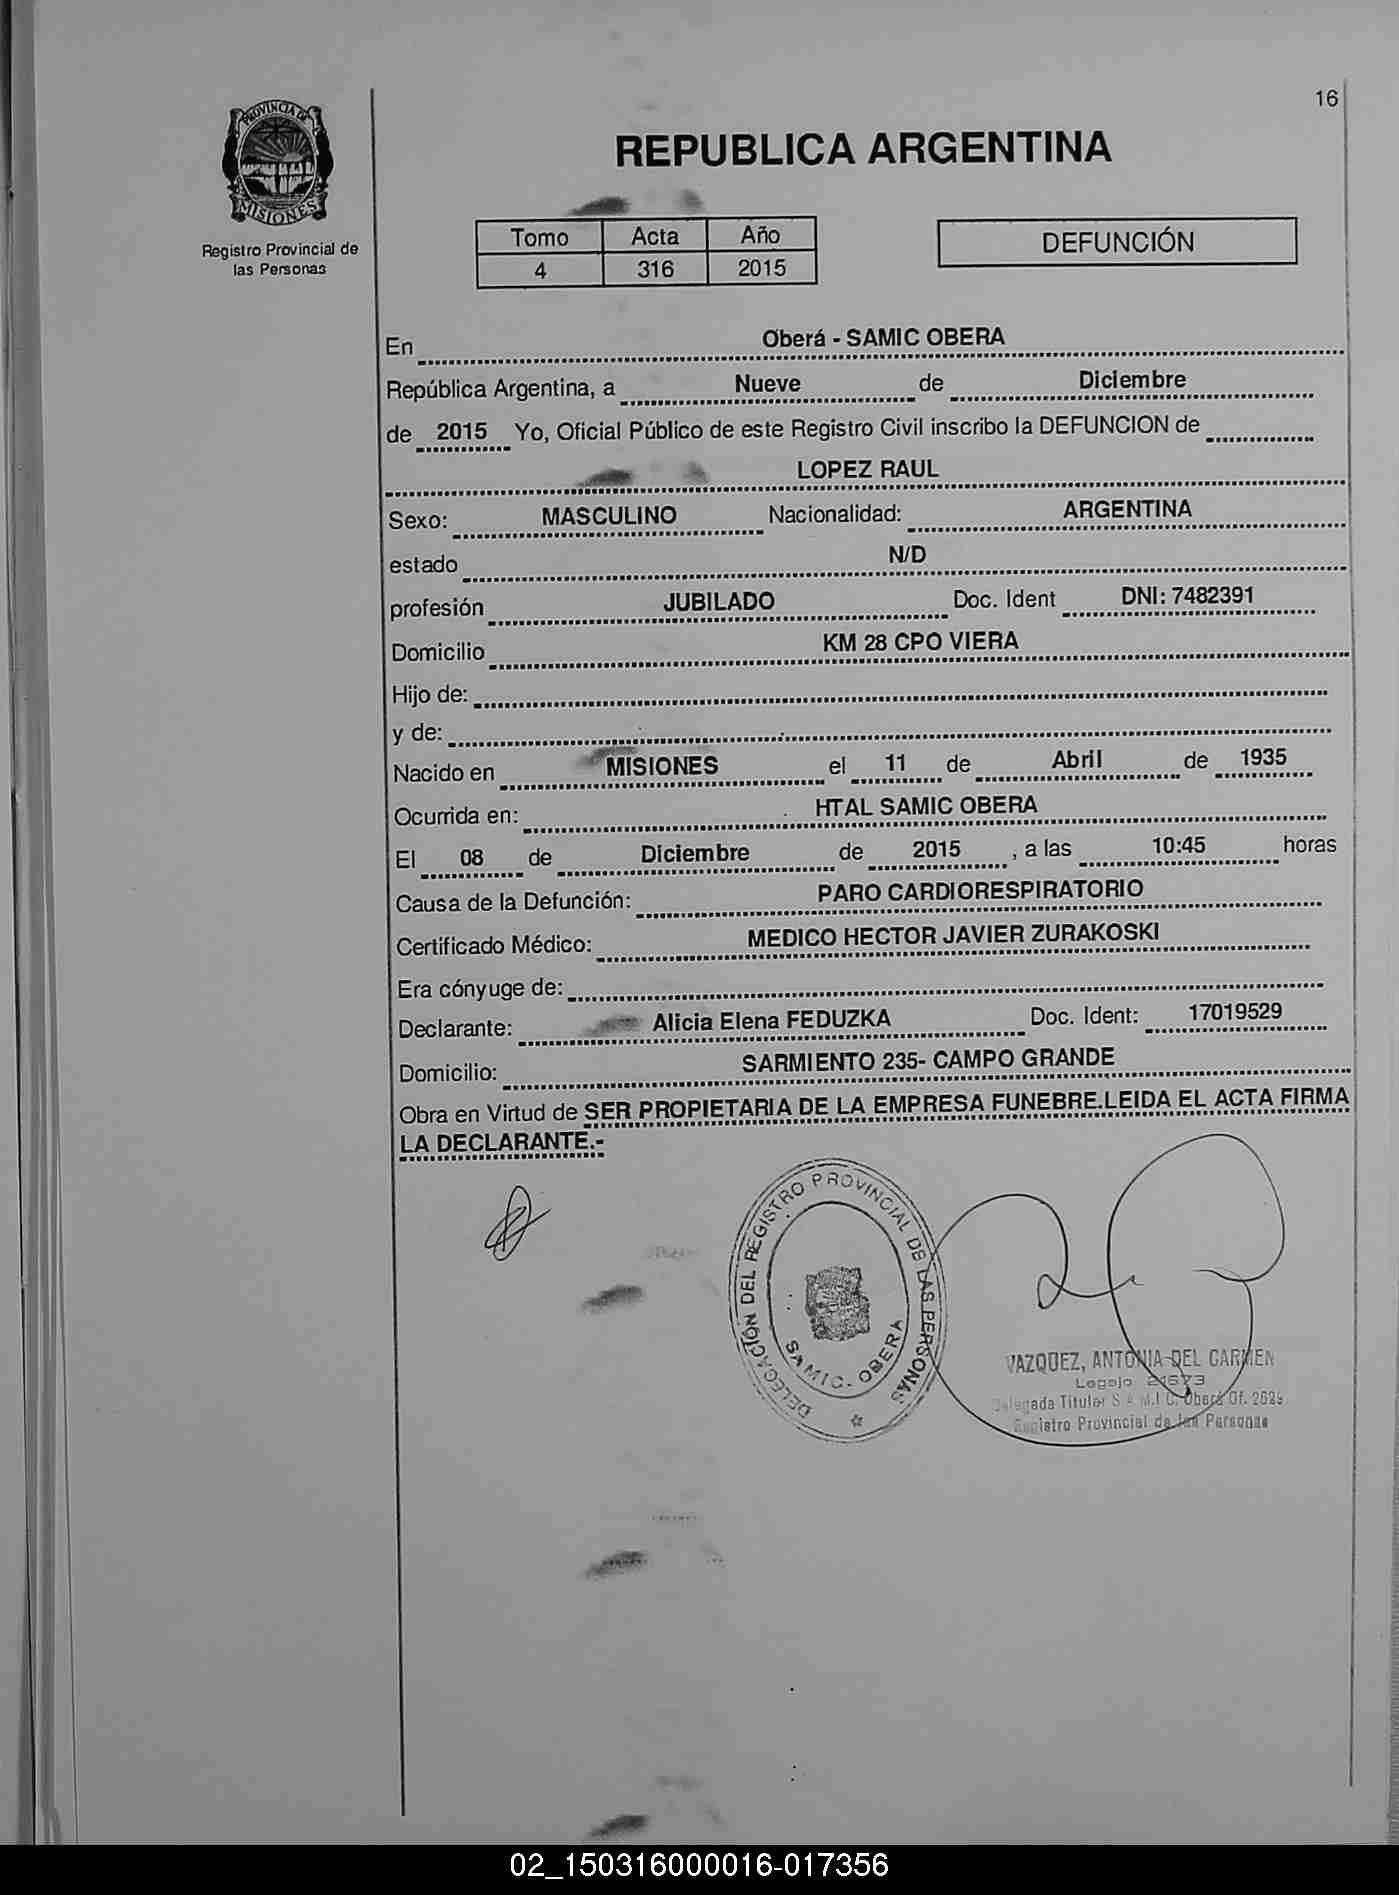 16
PROVINCIA DE
MISIONES
Registro Provincial de
las Personas
REPUBLICA ARGENTINA
Tomo Acta Año
4 316 2015
DEFUNCIÓN
En Oberá - SAMIC OBERA
República Argentina, a Nueve de Diciembre
de 2015 Yo, Oficial Público de este Registro Civil inscribo la DEFUNCION de
LOPEZ RAUL
Sexo: MASCULINO Nacionalidad: ARGENTINA
estado N/D
profesión JUBILADO Doc. Ident DNI: 7482391
Domicilio KM 28 CPO VIERA
Hijo de:
y de:
Nacido en MISIONES el 11 de Abril de 1935
Ocurrida en: HTAL SAMIC OBERA
El 08 de Diciembre de 2015 , a las 10:45 horas
Causa de la Defunción: PARO CARDIORESPIRATORIO
Certificado Médico: MEDICO HECTOR JAVIER ZURAKOSKI
Era cónyuge de:
Declarante: Alicia Elena FEDUZKA Doc. Ident: 17019529
Domicilio: SARMIENTO 235- CAMPO GRANDE
Obra en Virtud de SER PROPIETARIA DE LA EMPRESA FUNEBRE.LEIDA EL ACTA FIRMA
LA DECLARANTE.-
DELEGACIÓN DEL REGISTRO PROVINCIAL DE LAS PERSONAS
SAMIC. OBERA
VAZQUEZ, ANTONIA DEL CARMEN
Legajo
Delegada Titular S.A.M.I.C. Oberá Of. 2629
Registro Provincial de las Personas
02_150316000016-017356